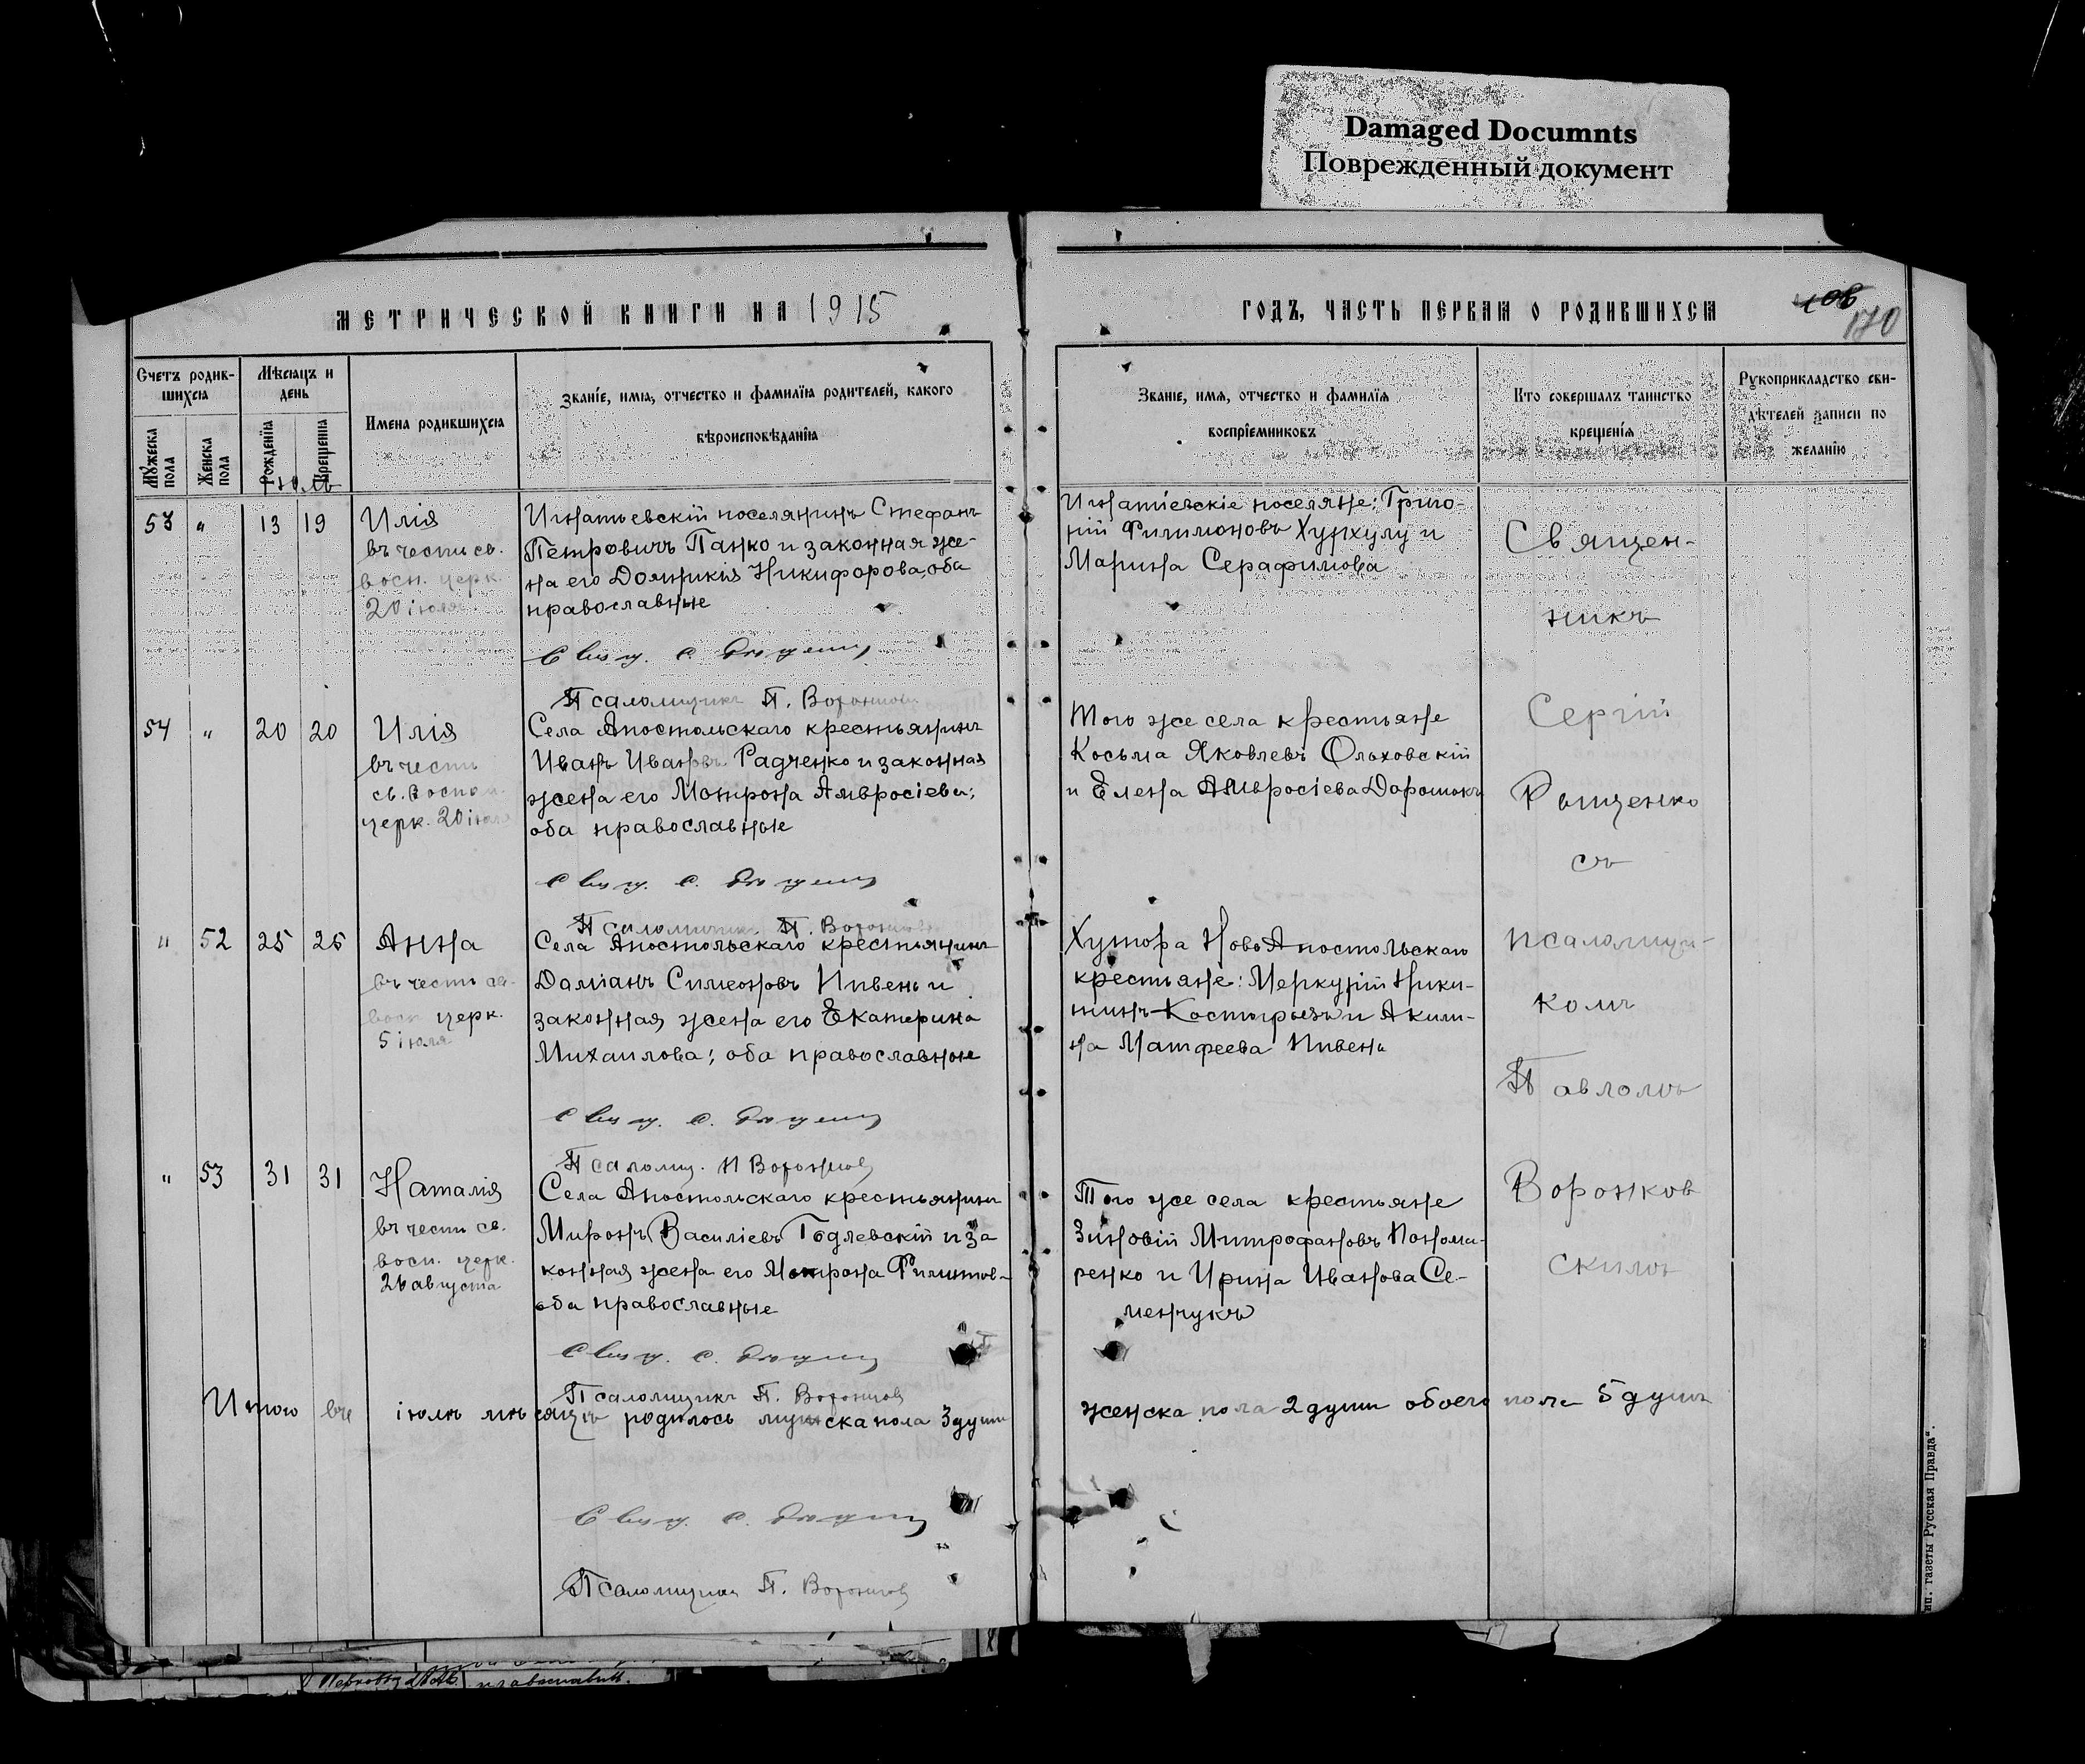 Damaged Documnts
Поврежденный документ
МЕТРИЧЕСКОЙ КНИГИ НА 1915
ГОДЪ, ЧАСТЬ ПЕРВАЯ О РОДИВШИХСЯ
108
170
Счетъ родив-
шихся
Мѣсяцъ и
день
Мужеска
пола
Женска
пола
Рожденія
Крещенія
Имена родившихся
Званіе, имя, отчество и фамилія родителей, какого
вѣроисповѣданія
Званіе, имя, отчество и фамилія
воспріемниковъ
Кто совершалъ таинство
крещенія
Рукоприкладство сви-
дѣтелей записи по
желанію
Іюль
53 " 13 19 Илія
въ честь св.
восп. церк.
20 іюля
Игнатьевскій поселянинъ Стефанъ
Петровичъ Панко и законная же-
на его Домникія Никифорова, оба
православные
Псаломщикъ П. Воронков
Игнатіевскіе поселяне: Григо-
рій Филимоновъ Хурхулу и
Марина Серафимова
54 " 20 20 Илія
въ честь
св. воспом.
церк. 20 іюля
Села Апостольскаго крестьянинъ
Иванъ Ивановъ Радченко и законная
жена его Мотрона Амвросіева;
оба православные
Псаломщик П. Воронков
Того же села крестьяне
Косьма Яковлевъ Ольховскій
и Елена Амвросіева Дорошокъ
" 52 25 25 Анна
въ честь св.
восп. церк.
5 іюля
Села Апостольскаго крестьянинъ
Даміанъ Симеоновъ Пивень и
законная жена его Екатерина
Михаилова; оба православные
Псаломщ. П Воронков
Хутора НовоАпостольскаго
крестьяне: Меркурій Ники-
тинъ и Акили-
на Матфеева Пивень
" 53 31 31 Наталія
въ честь св.
восп. церк.
26 августа
Села Апостольскаго крестьянинъ
Миронъ Василіевъ Годлевскій и за
конная жена его Мотрона Филиппов-
оба православные
Псаломщикъ П. Воронков
Того же села крестьяне
Зиновій Митрофановъ Понома-
ренко и Ирина Иванова Се-
менчукъ
Священ-
никъ
Сергій
Рыщенко
съ
псаломщи-
комъ
Павломъ
Воронков
скимъ
Итого въ іюлѣ мѣсяцѣ родилось мужска пола 3 души
женска пола 2 души обоего пола 5 душъ
Псаломщикъ П. Воронков
тип. газеты Русская Правда".
православн.